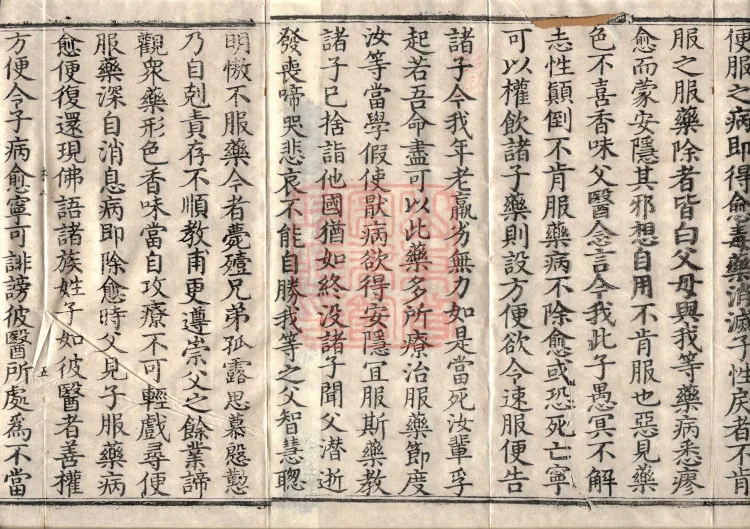 便服之病即得愈毒藥消滅子性戾者不肯
服之服藥除者皆白父母與我等藥病悉瘳
愈而蒙安隱其邪想自用不肯服也惡見藥
色不喜香味父醫念言今我此子愚冥不解
志性顛倒不肯服藥病不除愈或恐死亡寧
可以權飲諸子藥則設方便欲令速服便告
諸子今我年老羸劣無力如是當死汝輩孚
起若吾命盡可以此藥多所療治服藥節度
汝等當學假使猒病欲得安隱宜服斯藥教
諸子已捨詣他國猶如終没諸子聞父潜逝
發喪啼哭悲哀不能自勝我等之父智慧聦
明慠不服藥今者薨殪兄弟孤露思慕慇懃
乃自剋責存不順教甫更遵崇父之餘業諦
觀衆藥形色香味當自攻療不可輕戲尋便
服藥深自消息病即除愈時父見子服藥病
愈便復還現佛語諸族姓子如彼醫者善權
方便令子病愈寧可誹謗彼醫所處爲不當
五